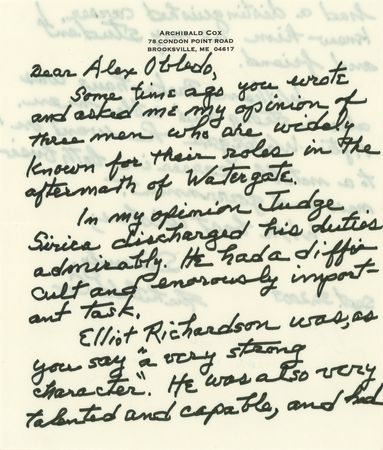 ARCHIBALD COX
78 CONDON POINT ROAD
BROOKSVILLE, ME 04617
Dear Alex Obledo,
Some time ago you wrote
and asked me my opinion of
three men who are widely
known for their roles in the
aftermath of Watergate.
In my opinion Judge
Sirica discharged his duties
admirably. He had a diffi-
cult and enorously import-
ant task.
Elliot Richardson was, as
you say "a very strong
character". He was also very
talented and capable, and had